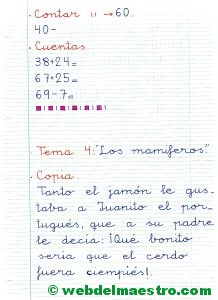 . Contar ıı →60.
40-
. Cuentas.
38+24=
67+25=
69-7=
Tema 4: "Los mamíferos".
. Copia.
Tanto el jamón le gus-
taba a Juanito el por-
tugués, que a su padre
le decía: ¡Qué bonito
sería que el cerdo
fuera ciempiés!.
© webdelmaestro.com